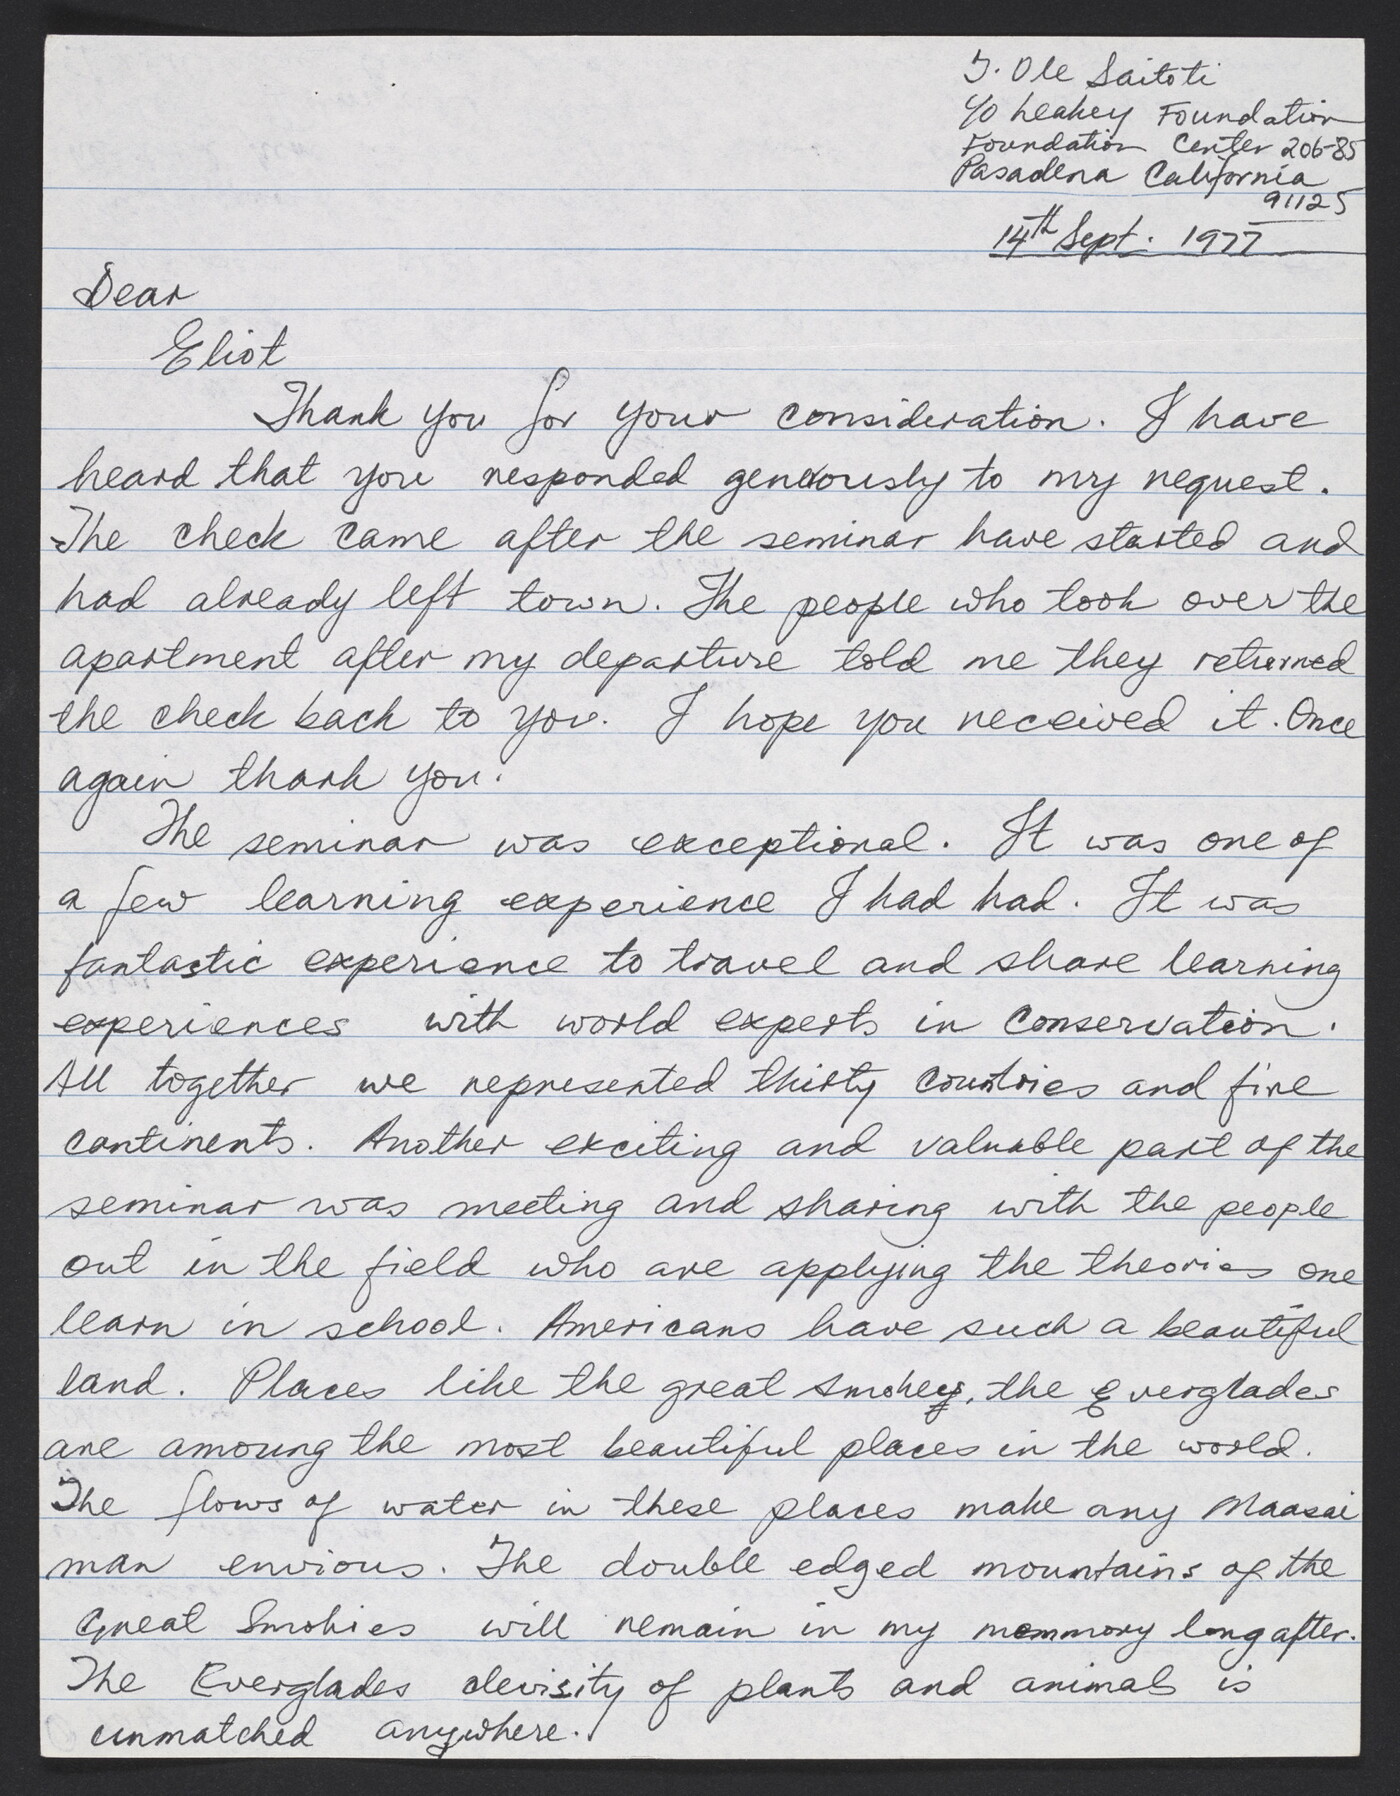 T. Ole Saitoti
c/o Leakey Foundation
Foundation Center 206-85
Pasadena California
91125
14th Sept. 1977
Dear
Eliot
Thank you for your consideration. I have
heard that you responded generously to my request.
The check came after the seminar have started and
had already left town. The people who took over the
apartment after my departure told me they returned
the check back to you. I hope you received it. Once
again thank you.
The seminar was exceptional. It was one of
a few learning experience I had had. It was
fantastic experience to travel and share learning
experiences with world experts in Conservation.
All together we represented thirty countries and five
continents. Another exciting and valuable part of the
seminar was meeting and sharing with the people
out in the field who are applying the theories one
learn in school. Americans have such a beautiful
land. Places like the great Smokeys, the Everglades
are amoung the most beautiful places in the world.
The flows of water in these places make any Maasai
man envious. The double edged mountains of the
Great Smokies will remain in my memmory long after.
The Everglades devisity of plants and animals is
unmatched anywhere.